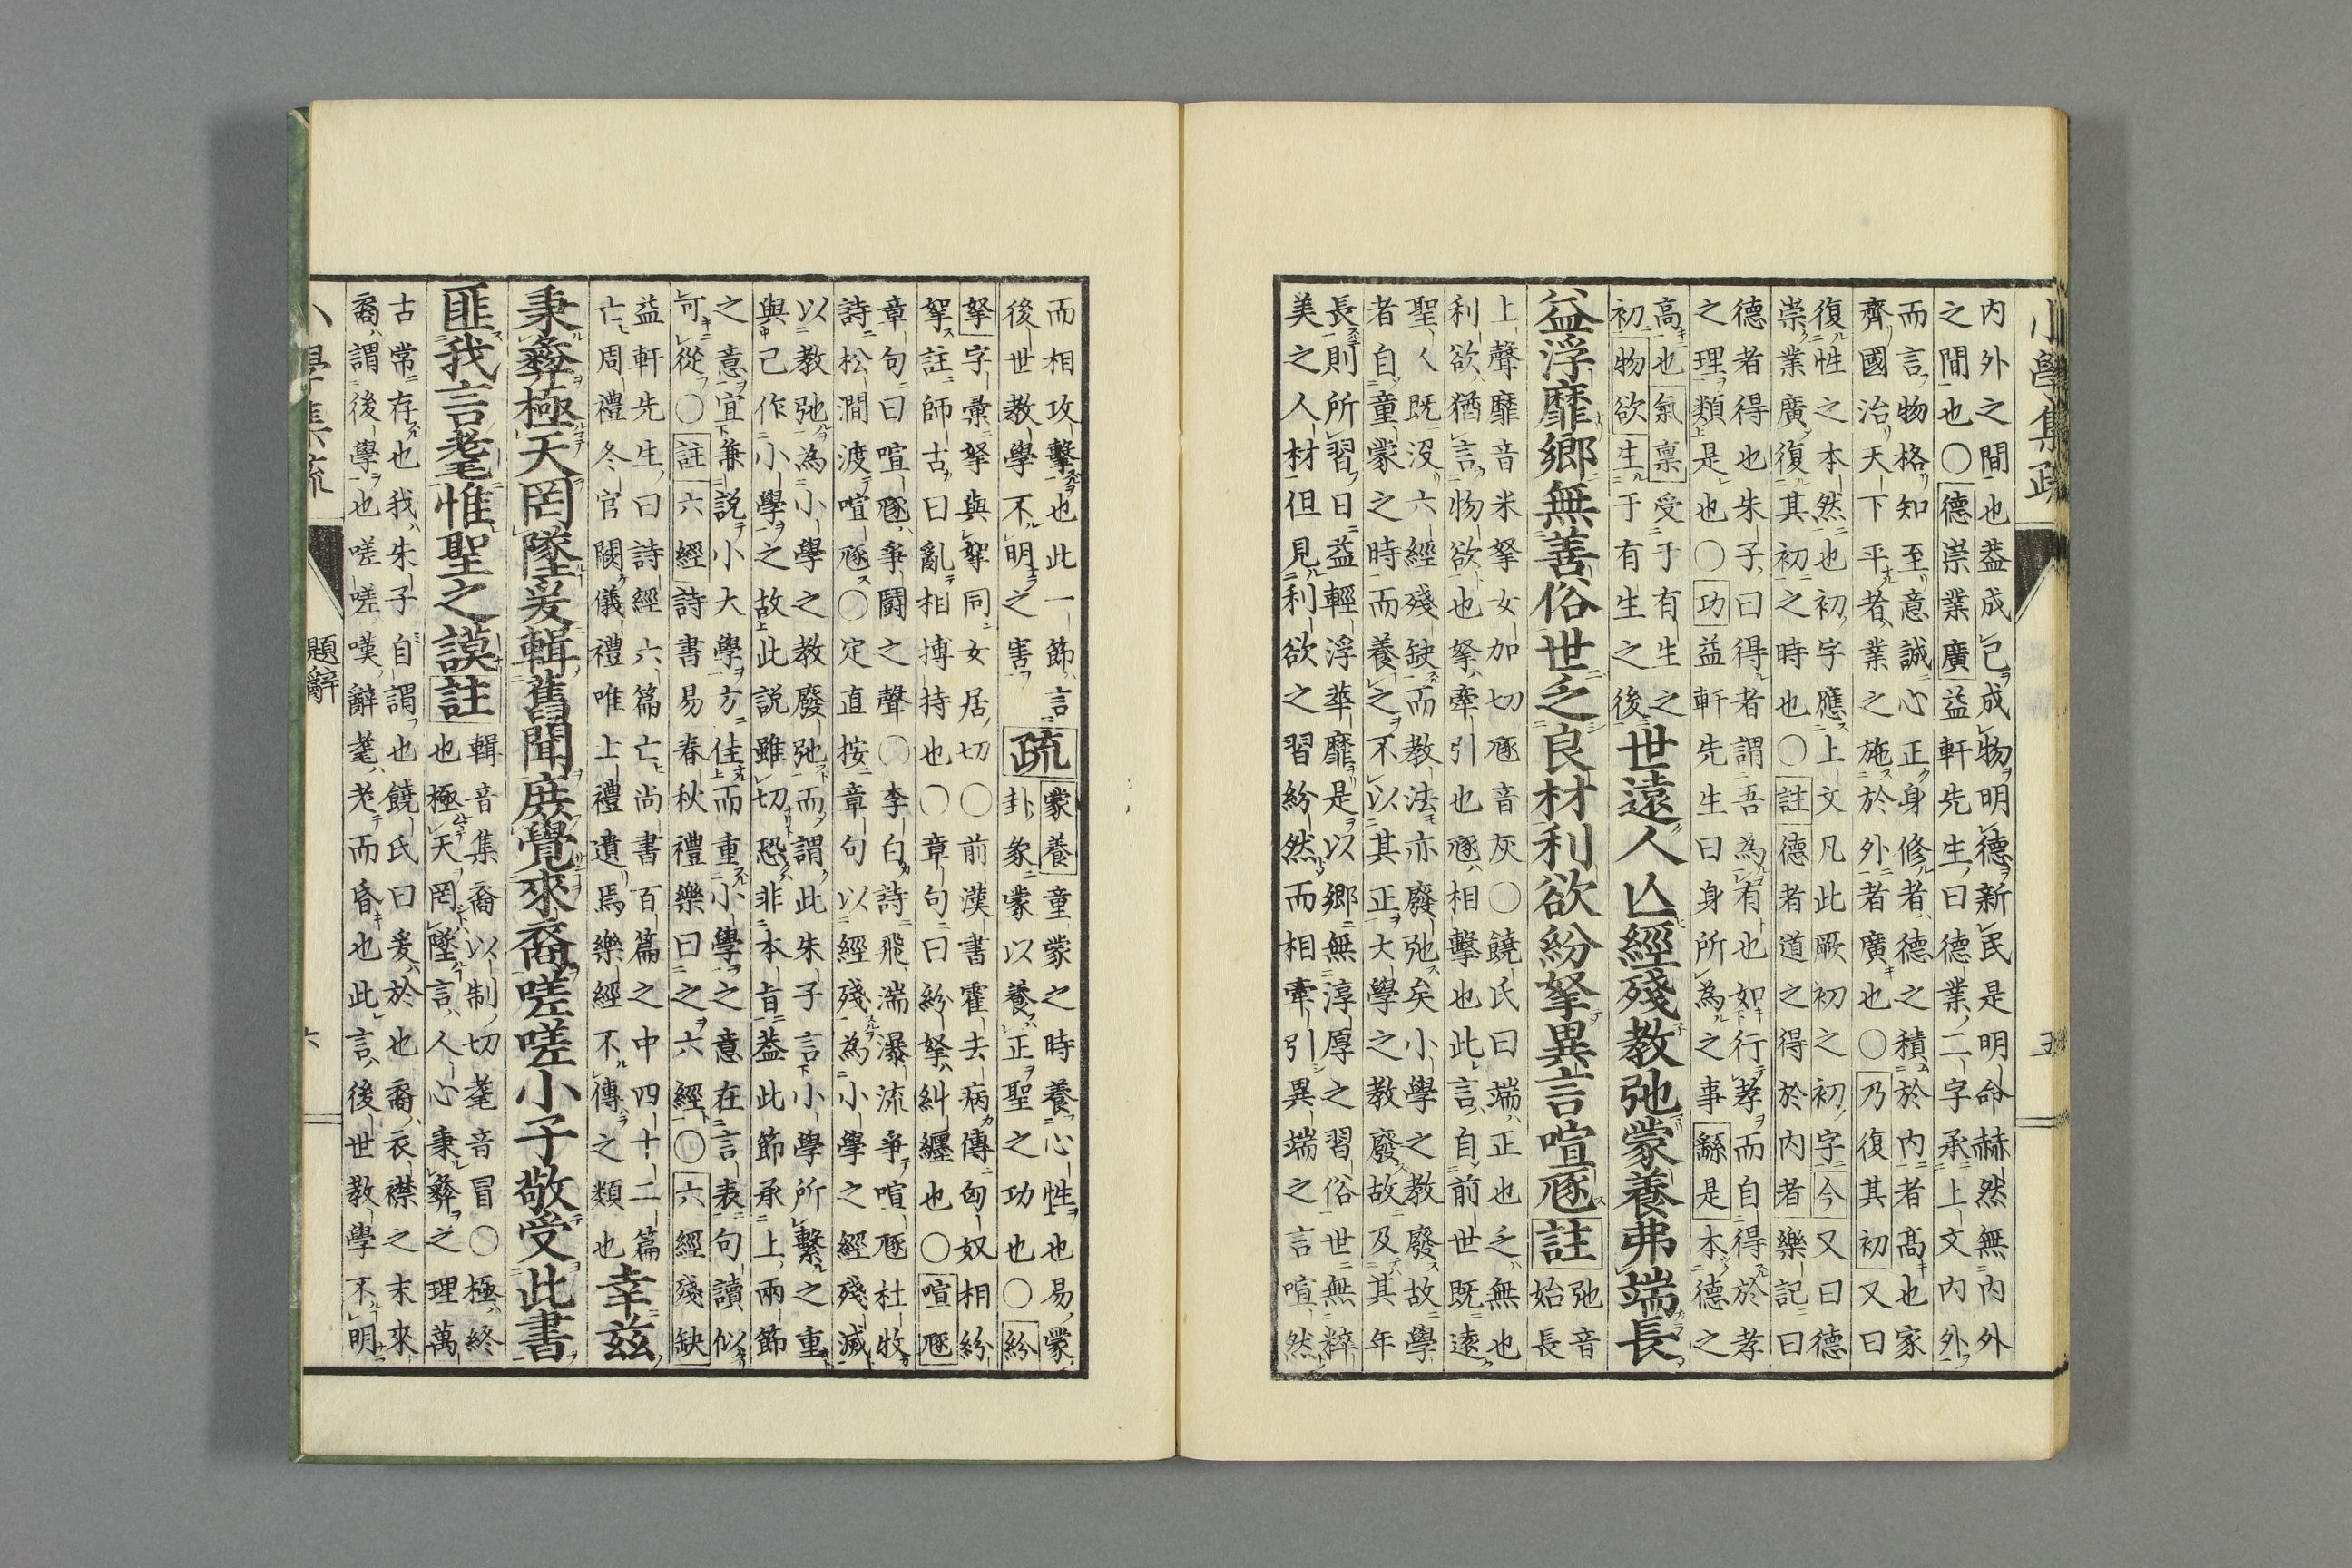 小學集疏
五
内外之間也葢成己成物明德新民是明命赫然無内外
之間也〇德崇業廣益軒先生曰德業二字承上文内外
而言物格知至意誠心正身修者德之積於内者髙也家
齊國治天下平者業之施於外者廣也〇乃復其初又曰
復性之本然也初字應上文凡此厥初之初字今又曰德
崇業廣復其初之時也〇註德者道之得於内者樂記曰
德者得也朱子曰得者謂吾為有也如行孝而自得於孝
之理類是也〇功益軒先生曰身所為之事繇是本德之
高也氣禀受于有生之
初物欲生于有生之後世遠人亾經殘教弛蒙養弗端長
益浮靡鄉無善俗世乏良材利欲紛拏異言喧豗註弛音
始長
上聲靡音米拏女加切豗音灰〇饒氏曰端正也乏無也
利欲猶言物欲也拏牽引也豗相擊也此言自前世既遠
聖人既沒六經殘缺而教法亦廢弛矣小學之教廢故學
者自童蒙之時而養之不以其正大學之教廢故及其年
長則所習日益輕浮華靡是以鄉無淳厚之習俗世無粹
美之人材但見利欲之習紛然而相牽引異端之言喧然
而相攻擊也此一節言
後世教學不明之害疏蒙養童蒙之時養心性也易蒙
卦彖蒙以養正聖之功也〇紛
拏字彙拏與挐同女居切〇前漢書霍去病傳匈奴相紛
挐註師古曰亂相搏持也〇章句曰紛拏糾纒也〇喧豗
章句曰喧豗爭鬪之聲〇李白詩飛湍瀑流爭喧豗杜牧
詩松澗渡喧豗〇定直按章句以經殘為小學之經殘滅
以教弛為小學之教廢弛而謂此朱子言小學所繫之重
與己作小學之故此説雖切恐非本旨葢此節承上兩節
之意宜兼説小大學方佳而重小學之意在言表句讀似
可從〇註六經詩書易春秋禮樂曰之六經〇六經殘缺
益軒先生曰詩經六篇亡尚書百篇之中四十二篇
亡周禮冬官闕儀禮唯士禮遺焉樂經不傳之類也幸茲
秉彝極天罔墜爰輯舊聞庶覺來裔嗟嗟小子敬受此書
匪我言耄惟聖之謨註輯音集裔以制切耄音冒〇極終
也極天罔墜言人心秉彝之理萬
古常存也我朱子自謂也饒氏曰爰於也裔衣襟之末來
裔謂後學也嗟嗟嘆辭耄老而昏也此言後世教學不明
小學集疏
題辭
六